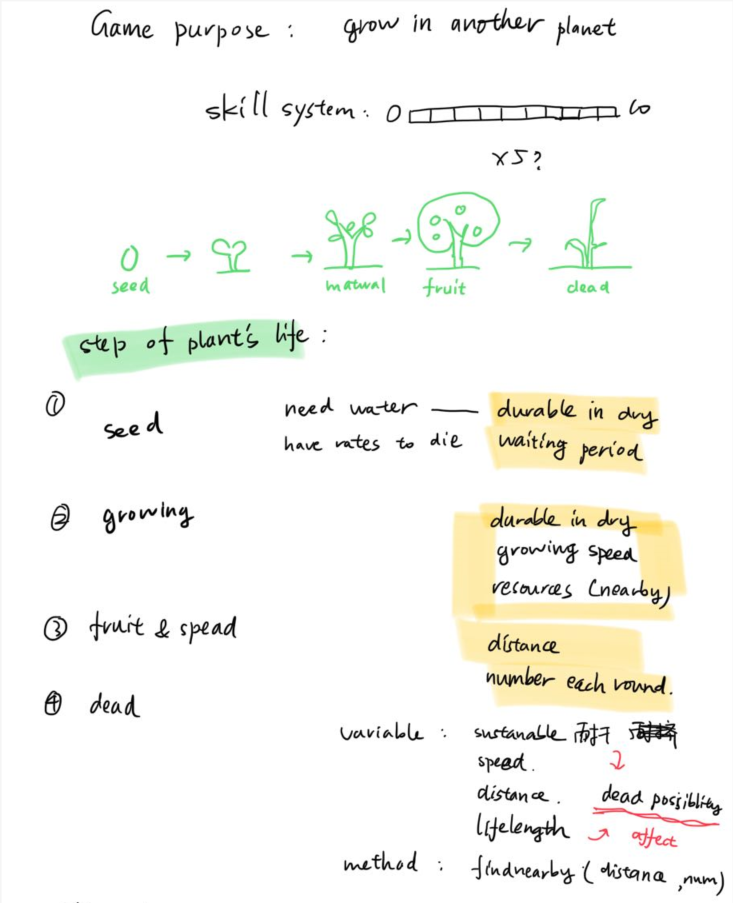 Game purpose : grow in another planet
skill system : 0 10
x5?
seed matual fruit dead
step of plant's life :
① seed need water — durable in dry
have rates to die waiting period
② growing durable in dry
growing speed
resources (nearby)
③ fruit & spead distance
number each round.
④ dead
variable : sustanable 耐干
speed.
distance. dead possiblity
lifelength affect
method : findnearby (distana ,num)